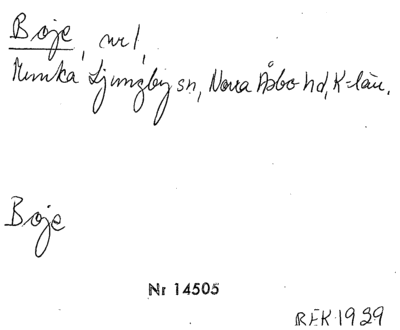 Boje, nr 1,
Munka Ljungby sn, Norra Åsbo hd, K-län.
Boje
Nr 14505
REK 1929